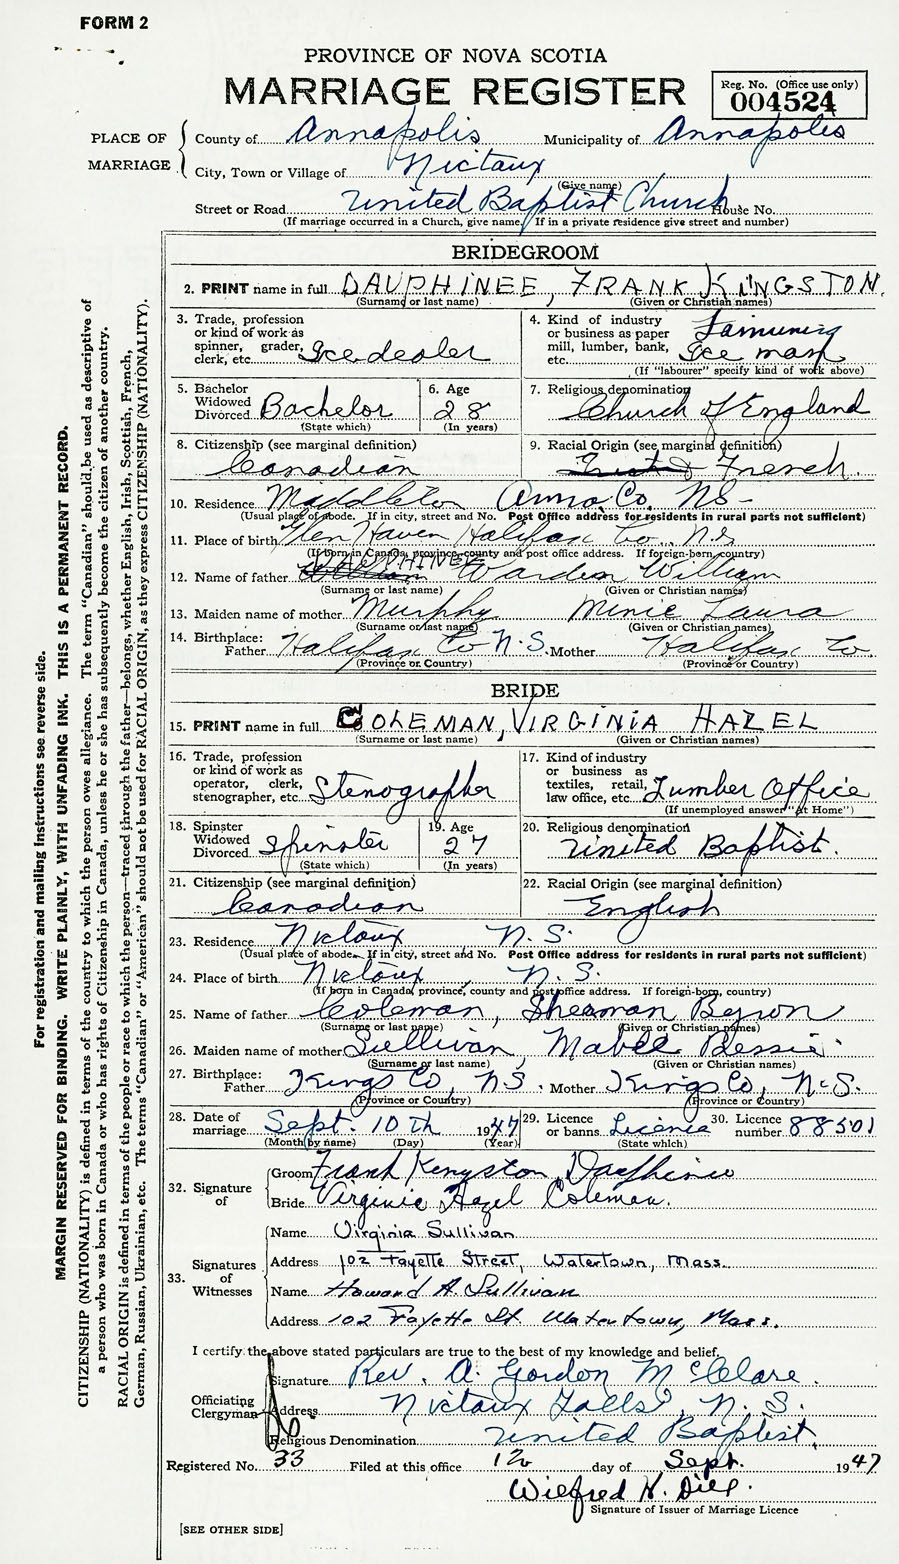 FORM 2
PROVINCE OF NOVA SCOTIA
MARRIAGE REGISTER
Reg. No. (Office use only)
004524
PLACE OF MARRIAGE
County of Annapolis Municipality of Annapolis
City, Town or Village of Nictaux
(Give name)
Street or Road United Baptist Church House No.
(If marriage occurred in a Church, give name. If in a private residence give street and number)
BRIDEGROOM
2. PRINT name in full DAUPHINEE, FRANK KINGSTON.
(Surname or last name) (Given or Christian names)
3. Trade, profession or kind of work as spinner, grader, clerk, etc. Ice dealer
4. Kind of industry or business as paper mill, lumber, bank, etc. Ice man
(If "labourer" specify kind of work above)
5. Bachelor Widowed Divorced Bachelor
(State which)
6. Age 28
(In years)
7. Religious denomination Church of England
8. Citizenship (see marginal definition) Canadian
9. Racial Origin (see marginal definition) French.
10. Residence Middleton Anna. Co. NS-
(Usual place of abode. If in city, street and No. Post Office address for residents in rural parts not sufficient)
11. Place of birth Glen Haven Halifax Co. N.S
(If born in Canada, province, county and post office address. If foreign-born, country)
12. Name of father DAUPHINEE Warden William
(Surname or last name) (Given or Christian names)
13. Maiden name of mother Murphy Minie Laura
(Surname or last name) (Given or Christian names)
14. Birthplace: Father Halifax Co N.S. Mother Halifax Co.
(Province or Country) (Province or Country)
BRIDE
15. PRINT name in full COLEMAN, VIRGINIA HAZEL
(Surname or last name) (Given or Christian names)
16. Trade, profession or kind of work as operator, clerk, stenographer, etc. Stenographer
17. Kind of industry or business as textiles, retail, law office, etc. Lumber Office
(If unemployed answer "At Home")
18. Spinster Widowed Divorced Spinster
(State which)
19. Age 27
(In years)
20. Religious denomination United Baptist.
21. Citizenship (see marginal definition) Canadian
22. Racial Origin (see marginal definition) English
23. Residence Nictaux N.S.
(Usual place of abode. If in city, street and No. Post Office address for residents in rural parts not sufficient)
24. Place of birth Nictaux, N.S.
(If born in Canada, province, county and post office address. If foreign-born, country)
25. Name of father Coleman, Sherman Byron
(Surname or last name) (Given or Christian names)
26. Maiden name of mother Sullivan, Mabel Bessie
(Surname or last name) (Given or Christian names)
27. Birthplace: Father Kings Co, NS. Mother Kings Co, N.S.
(Province or Country) (Province or Country)
28. Date of marriage Sept. 10th 1947
(Month by name) (Day) (Year)
29. Licence or banns Licence
(State which)
30. Licence number 88501
32. Signature of
Groom Frank Kingston Dauphinee
Bride Virginia Hazel Coleman.
33. Signatures of Witnesses
Name Virginia Sullivan
Address 102 Fayette Street, Watertown, Mass.
Name Howard A. Sullivan
Address 102 Fayette St. Watertown, Mass.
I certify the above stated particulars are true to the best of my knowledge and belief.
Officiating Clergyman
Signature Rev. A. Gordon McClare.
Address Nictaux Falls, N.S.
Religious Denomination United Baptist.
Registered No. 33 Filed at this office 12 day of Sept. 1947
Wilfred H. Dill.
Signature of Issuer of Marriage Licence
[SEE OTHER SIDE]
For registration and mailing instructions see reverse side.
MARGIN RESERVED FOR BINDING. WRITE PLAINLY, WITH UNFADING INK. THIS IS A PERMANENT RECORD.
CITIZENSHIP (NATIONALITY) is defined in terms of the country to which the person owes allegiance. The term "Canadian" should be used as descriptive of
a person who was born in Canada or who has rights of Citizenship in Canada, unless he or she has subsequently become the citizen of another country.
RACIAL ORIGIN is defined in terms of the people or race to which the person—traced through the father—belongs, whether English, Irish, Scottish, French,
German, Russian, Ukrainian, etc. The terms "Canadian" or "American" should not be used for RACIAL ORIGIN, as they express CITIZENSHIP (NATIONALITY).